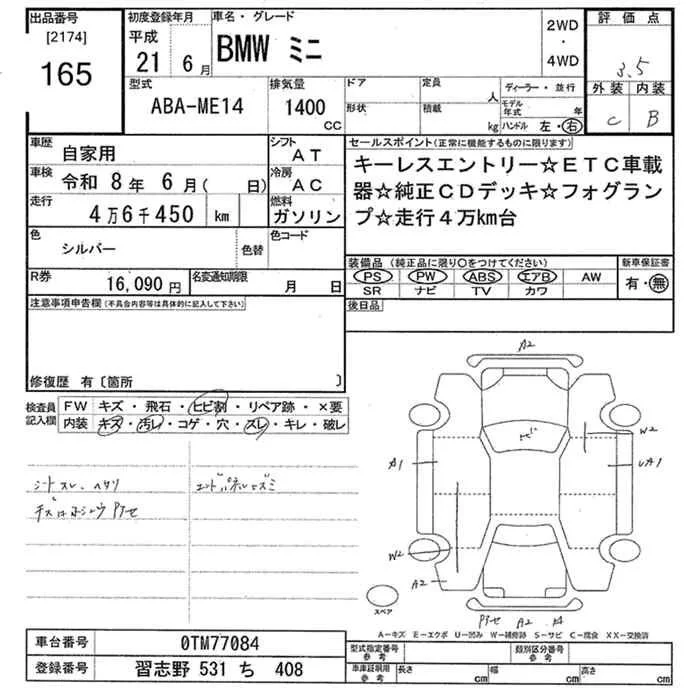 出品番号
[2174]
165
初度登録年月
平成
21 6月
車名・グレード
BMW ミニ
2WD
・
4WD
評価点
3.5
外装 内装
C B
型式
ABA-ME14
排気量
1400
CC
ドア
形状
定員
人
積載
kg
ディーラー・並行
モデル年式 年
ハンドル 左・右
車歴
自家用
シフト
AT
車検
令和 8年 6月( 日)
冷房
AC
走行
4万6千450 km
燃料
ガソリン
色
シルバー
色替
色コード
R券
16,090円
名変通知期限
月 日
セールスポイント(正常に機能するものに限ります)
キーレスエントリー☆ETC車載
器☆純正CDデッキ☆フォグラン
プ☆走行4万km台
装備品(純正品に限り○をつけてください)
PS PW ABS エアB AW
SR ナビ TV カワ
新車保証書
有・無
後日品
注意事項申告欄(不具合内容等は具体的に記入して下さい)
修復歴 有〔箇所 〕
検査員
記入欄
FW キズ・飛石・ヒビ割・リペア跡・×要
内装 キズ・汚レ・コゲ・穴・スレ・キレ・破レ
シートスレ、ヘタリ
A2
ヒビ
W2
A1
UA1
W2
A2
スペア
A2
A-キズ E-エクボ U-凹み W-補修跡 S-サビ C-腐食 XX-交換済
車台番号
0TM77084
登録番号
習志野 531 ち 408
型式指定番号
参考
類別区分番号
参考
車庫証明用
参考
長さ cm
幅 cm
高さ cm